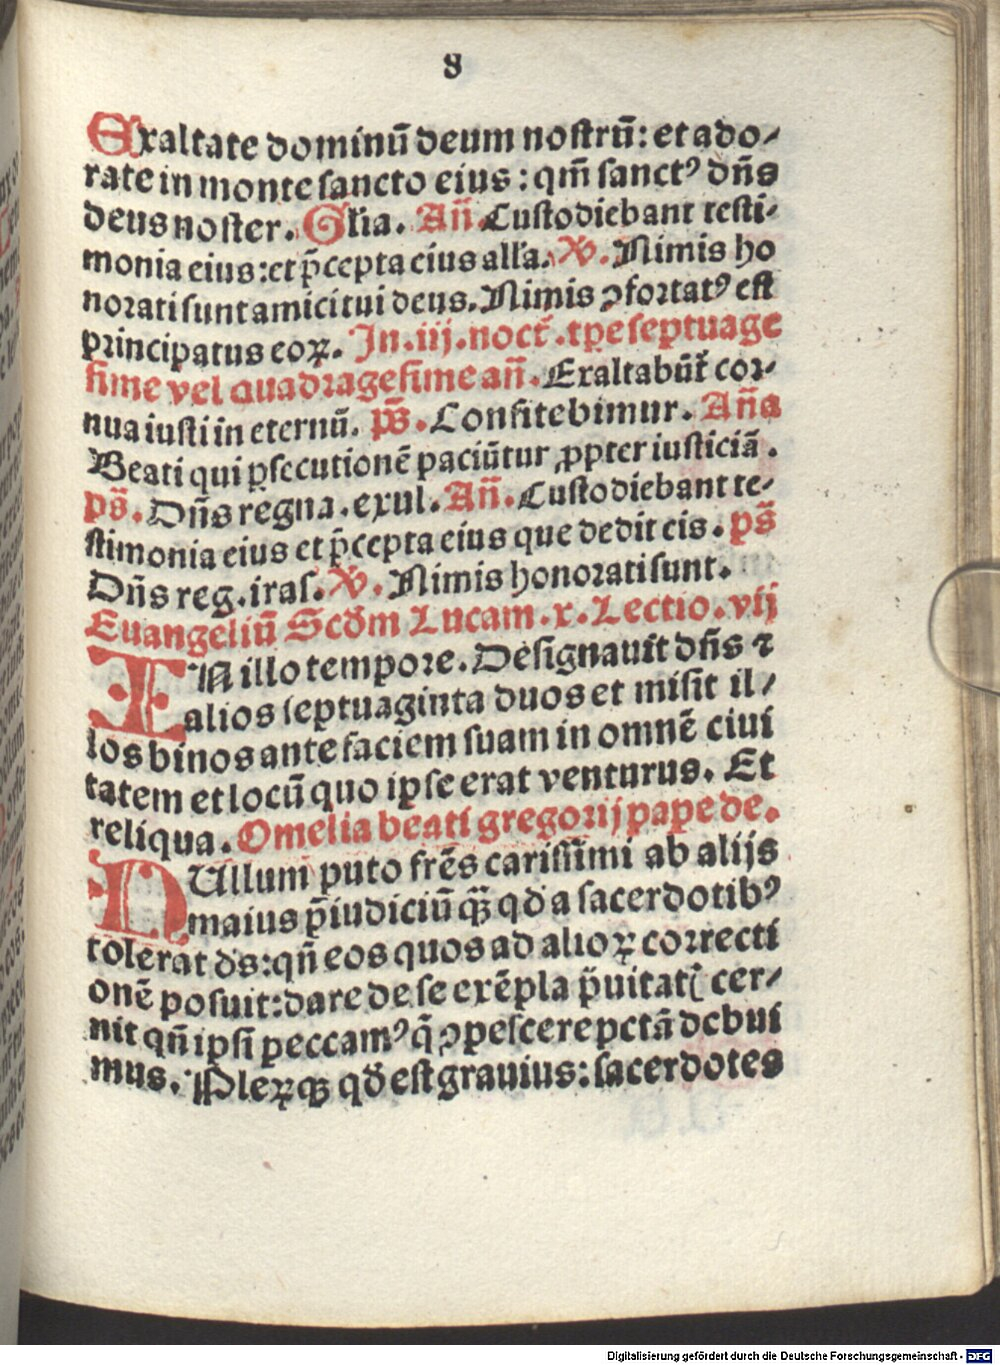 8
Exaltate dominū deum nostrū: et ado-
rate in monte sancto eius: qm̄ sanctꝰ dn̄s
deus noster. Gl'ia. An̄. Custodiebant testi-
monia eius: et p̄cepta eius all'a. ℣. Nimis ho
norati sunt amici tui deus. Nimis ꝯfortatꝰ est
principatus eoꝝ. In .iij. noct̄. tpe septuage
sime vel quadragesime an̄. Exaltabūt̄ cor-
nua iusti in eternū. ps̄. Confitebimur. An̄a
Beati qui ꝑsecutionē paciūtur ꝓpter iusticiā.
ps̄. Dn̄s regna. exul. An̄. Custodiebant te-
stimonia eius et p̄cepta eius que dedit eis. ps̄
Dn̄s reg. iras. ℣. Nimis honorati sunt.
Euangeliū Scd̄m Lucam. x. Lectio. vij
IN illo tempore. Designauit dn̄s ⁊
alios septuaginta duos et misit il-
los binos ante faciem suam in omnē ciui
tatem et locū quo ipse erat venturus. Et
reliqua. Omelia beati gregorij pape de.
NUllum puto frēs carissimi ab alijs
maius p̄iudiciū qꝫ̄ qd̄ a sacerdotibꝰ
tolerat ds̄: qn̄ eos quos ad alioꝝ correcti
onē posuit: dare de se exēpla p̄uitatꝭ cer-
nit qn̄ ipsi peccamꝰ q̄ ꝯpescere pctā debui
mus. Pleꝝqꝫ qd̄ est grauius: sacerdotes
Digitalisierung gefördert durch die Deutsche Forschungsgemeinschaft - DFG